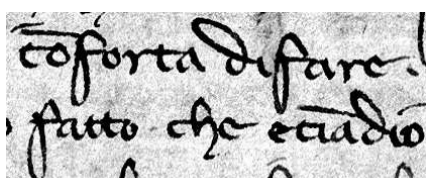 cōforta di fare .
fatto che eciādio